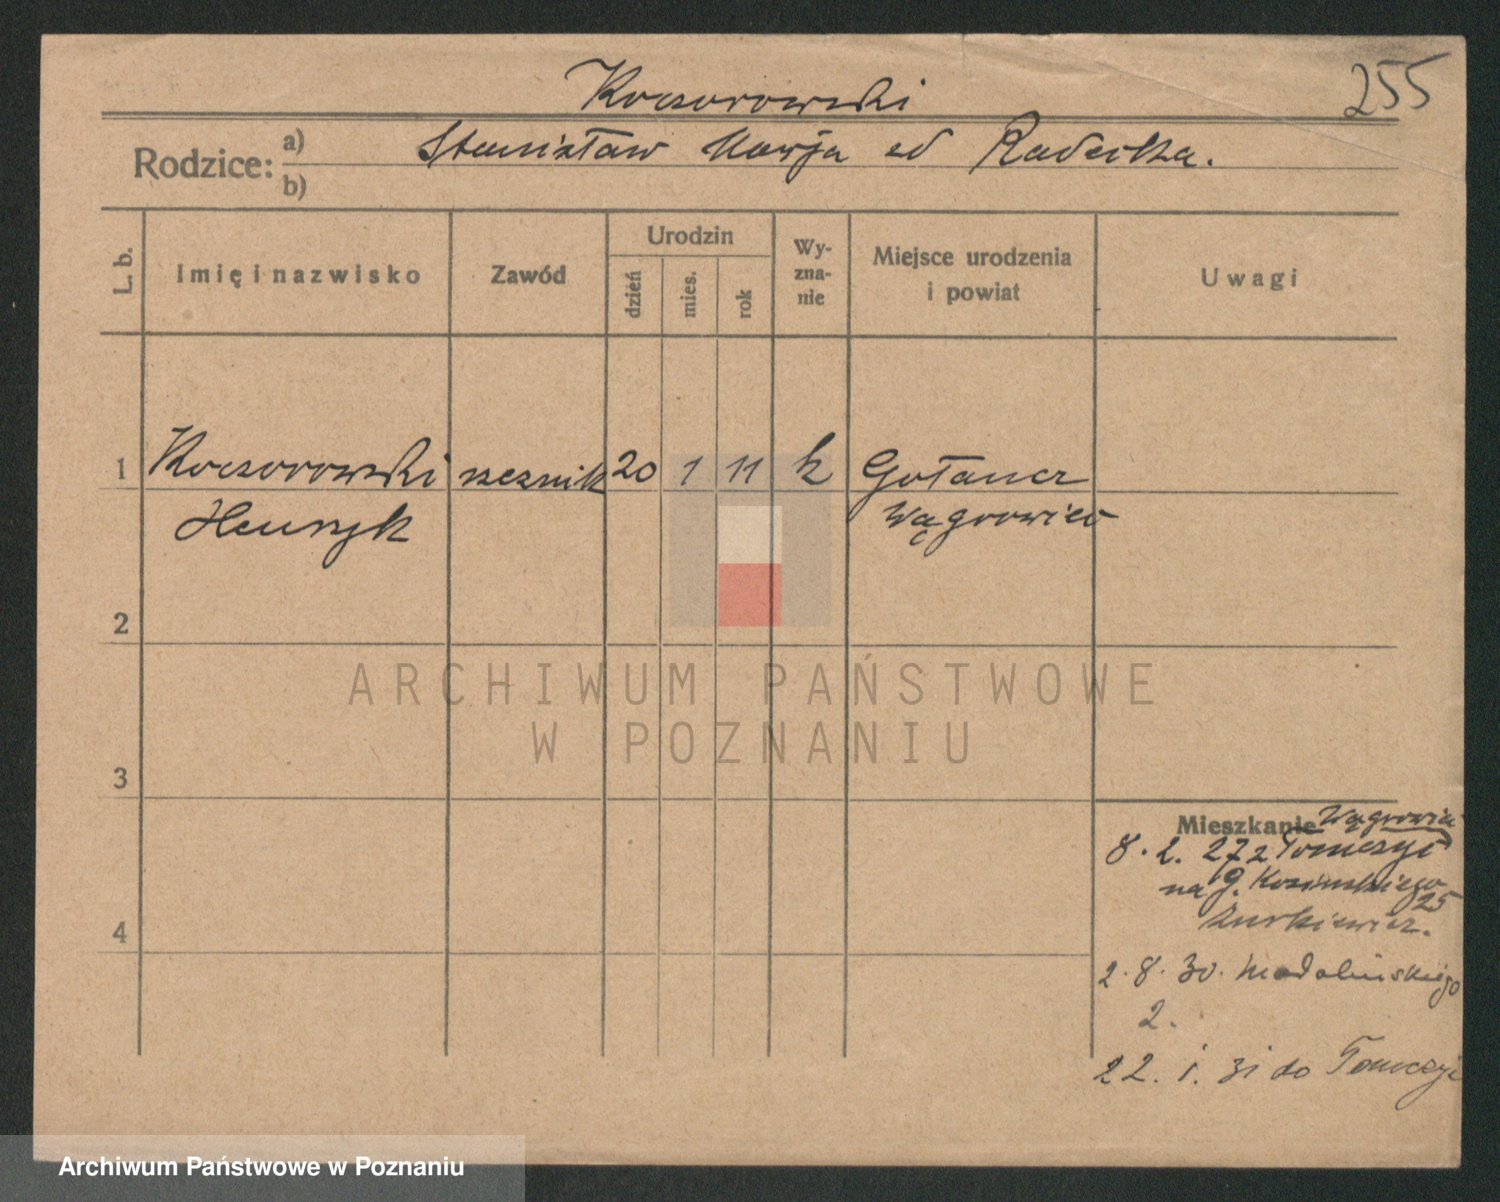 Koczorowski
255
Rodzice:
a) Stanisław Marja ed Radecka.
b)
L. b.
Imię i nazwisko
Zawód
Urodzin
dzień
mies.
rok
Wy-
zna-
nie
Miejsce urodzenia
i powiat
Uwagi
1 Koczorowski rzeznik 20 1 11 k Gołancz
Henryk Wągrowiec
2
3
4
Mieszkanie Wągrowiec
8. 2. 27 z
na g.
25
2. 8. 30. Madalińskiego
2.
22. 1. 31 do
ARCHIWUM PAŃSTWOWE
W POZNANIU
Archiwum Państwowe w Poznaniu